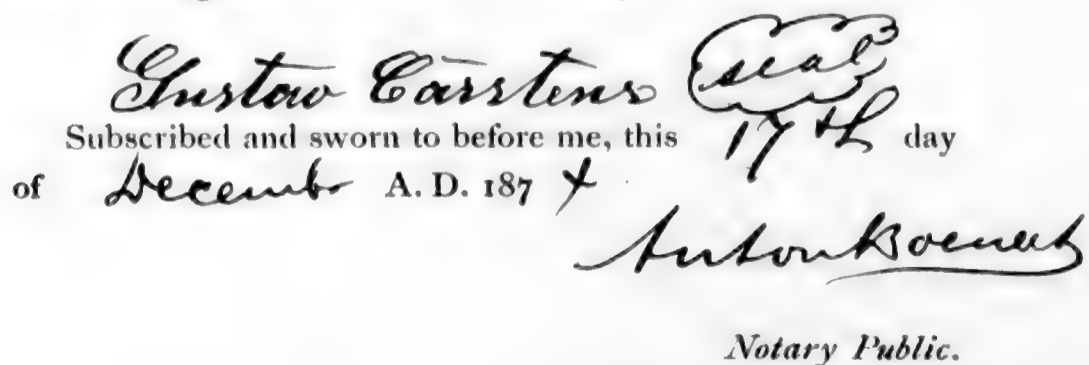 Gustav Carstens seal
Subscribed and sworn to before me, this 17th day
of Decembr A. D. 187 4
Anton
Notary Public.